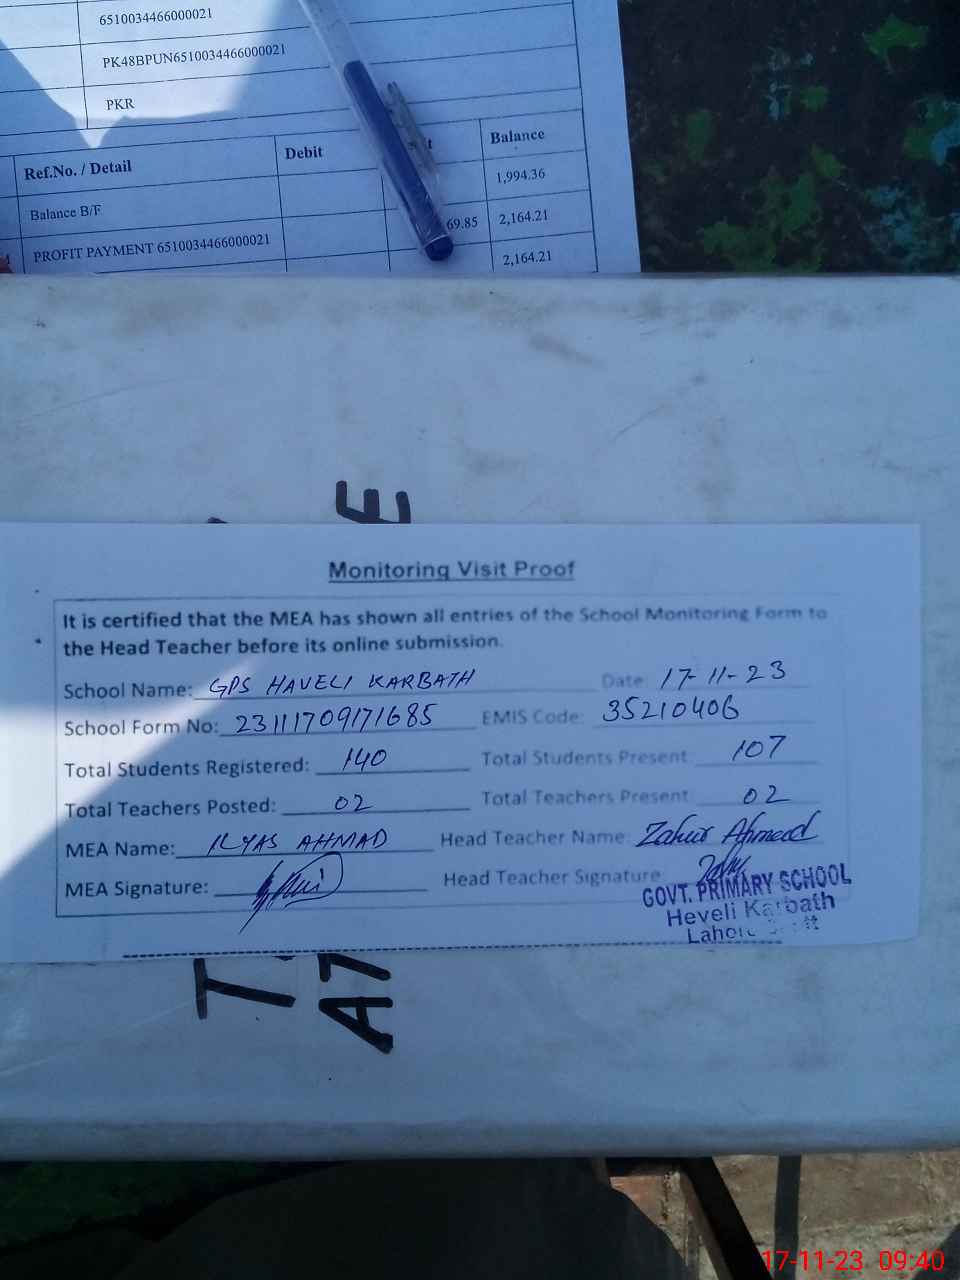 6510034466000021
PK48BPUN6510034466000021
PKR
Ref.No. / Detail Debit Balance
Balance B/F 1,994.36
PROFIT PAYMENT 6510034466000021 69.85 2,164.21
2,164.21
Monitoring Visit Proof
It is certified that the MEA has shown all entries of the School Monitoring Form to
the Head Teacher before its online submission.
School Name: GPS HAVELI KARBATH Date: 17-11-23
School Form No: 23111709171685 EMIS Code: 35210406
Total Students Registered: 140 Total Students Present: 107
Total Teachers Posted: 02 Total Teachers Present: 02
MEA Name: ILYAS AHMAD Head Teacher Name: Zahur Ahmead
MEA Signature: Head Teacher Signature:
GOVT. PRIMARY SCHOOL
Heveli Karbath
Lahore
17-11-23 09:40